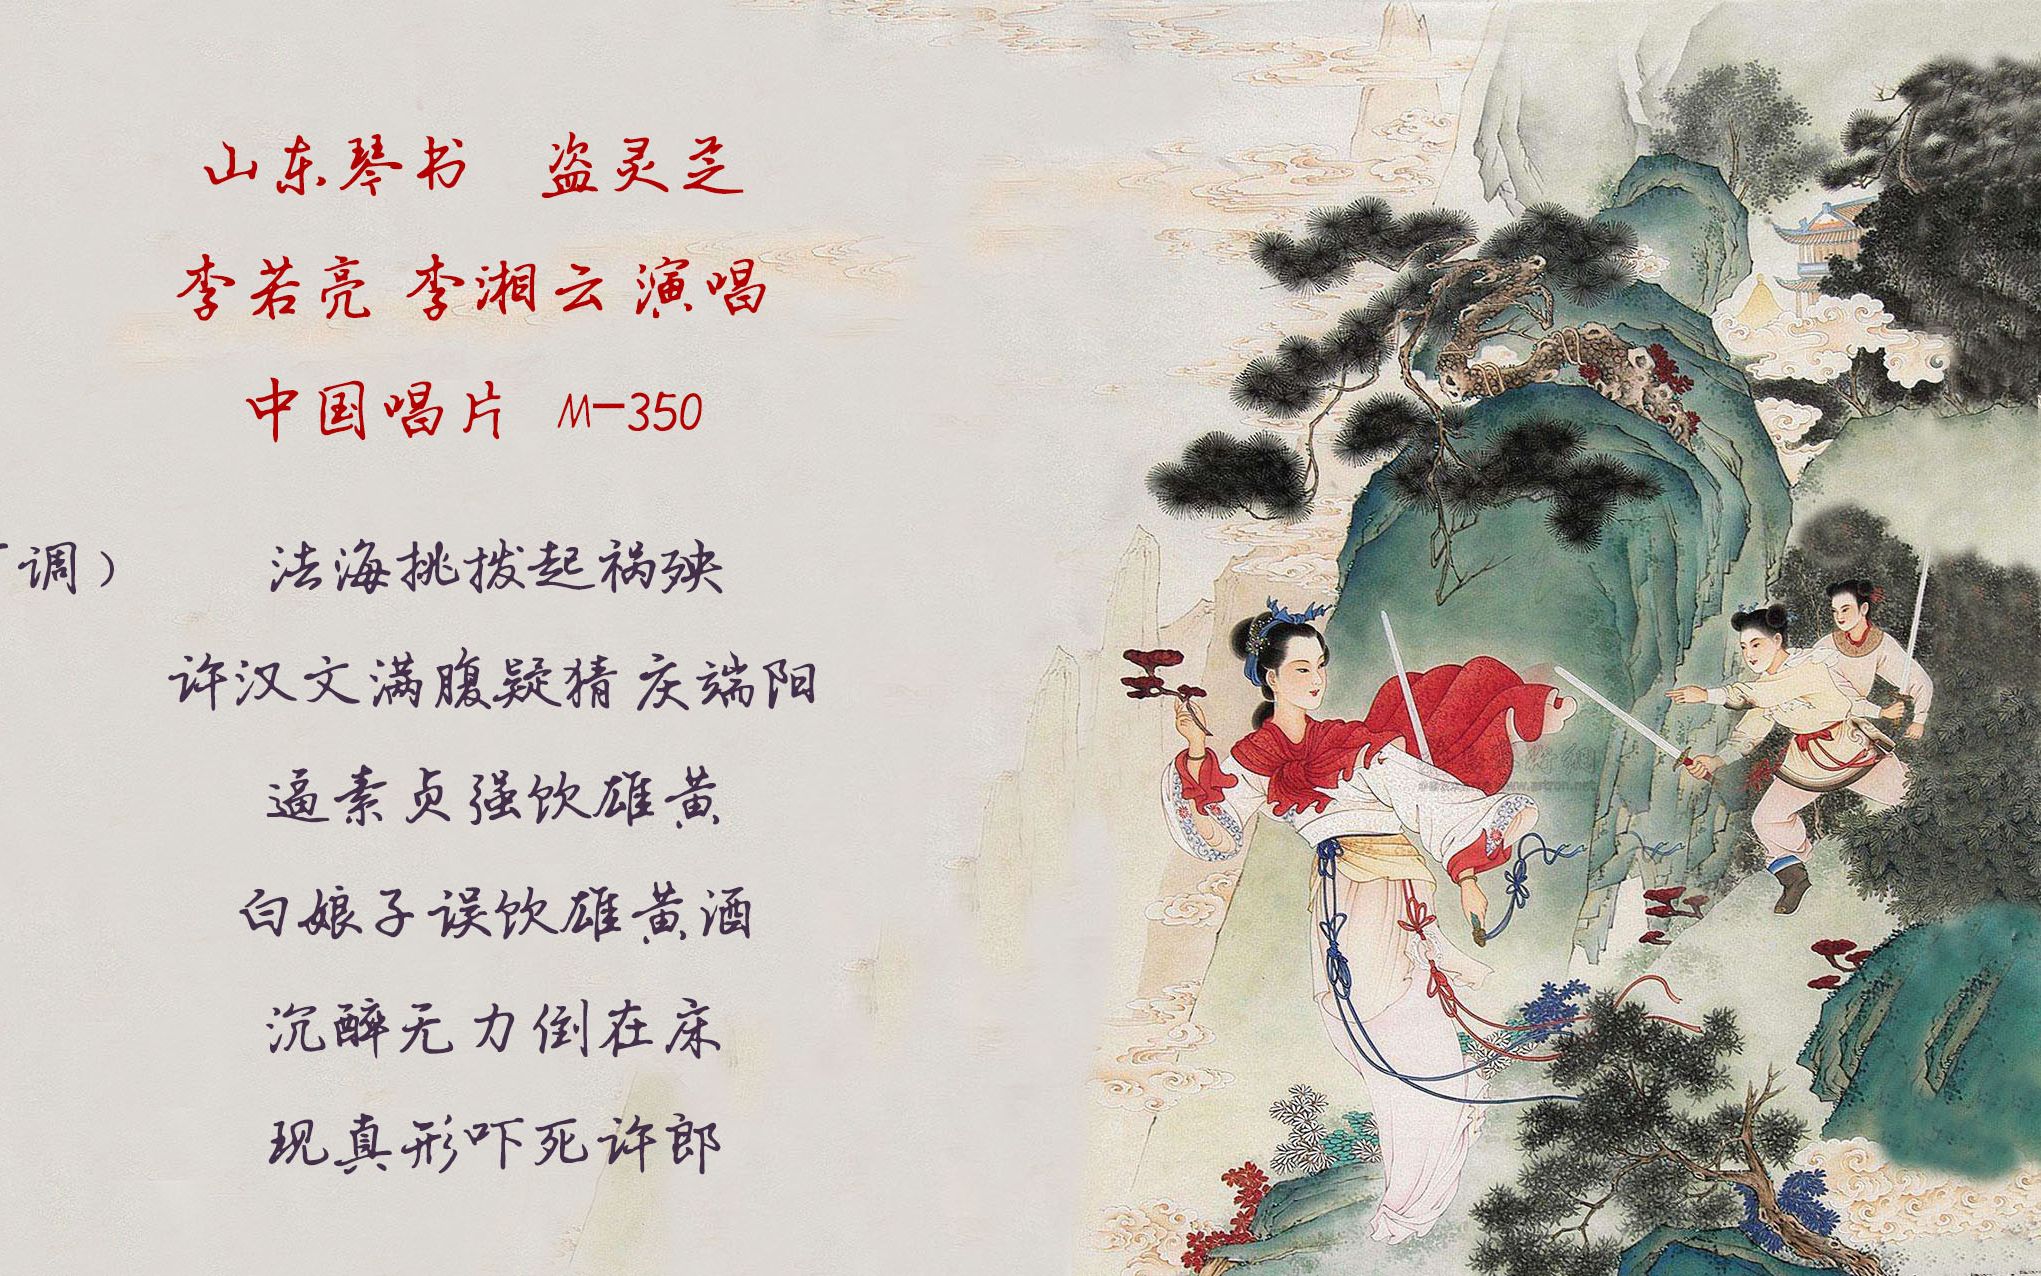 山东琴书 盗灵芝
李若亮 李湘云 演唱
中国唱片 M-350
调） 法海挑拨起祸殃
许汉文满腹疑猜 庆端阳
逼素贞强饮雄黄
白娘子误饮雄黄酒
沉醉无力倒在床
现真形吓死许郎